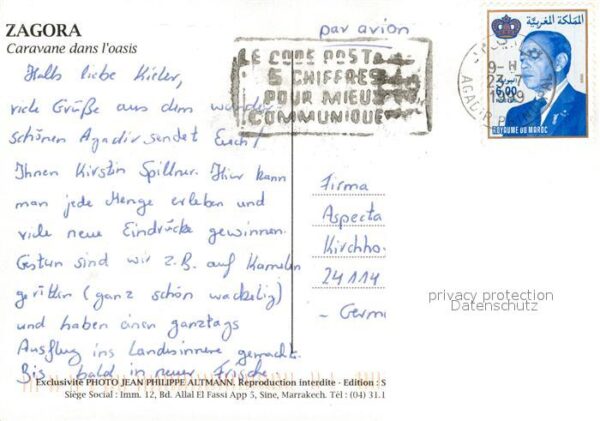 ZAGORA
Caravane dans l'oasis
par avion
LE CODE POSTAL
5 CHIFFRES
POUR MIEUX
COMMUNIQUER
المملكة المغربية
23-7
1999
AGADIR
6,00
البريد
ROYAUME DU MAROC
Hallo liebe Kieler,
viele Grüße aus dem wunder
schönen Agadir sendet Euch /
Ihnen Kirstin Spillner. Hier kann
man jede Menge erleben und
viele neue Eindrücke gewinnen.
Gestern sind wir z.B. auf Kamelen
geritten (ganz schön wackelig)
und haben einen ganztags
Ausflug ins Landesinnere gemacht.
Bis bald in neuer Frische.
Firma
Aspecta
Kirchho
24114
- Germ
privacy protection
Datenschutz
Exclusivité PHOTO JEAN PHILIPPE ALTMANN. Reproduction interdite - Edition : S
Siège Social : Imm. 12, Bd. Allal El Fassi App 5, Sine, Marrakech. Tél : (04) 31.1